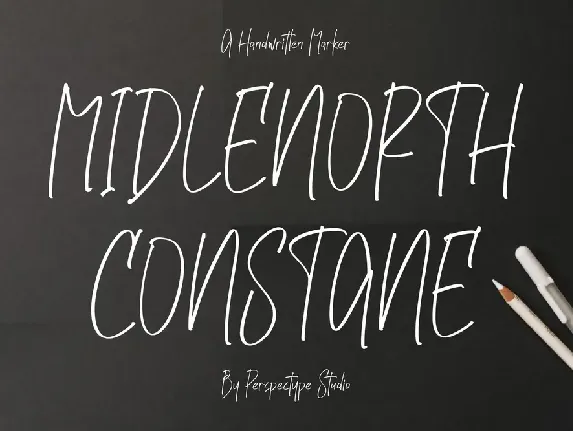 A Handwritten Marker
MIDLENORTH
CONSTANE
By Perspectype Studio